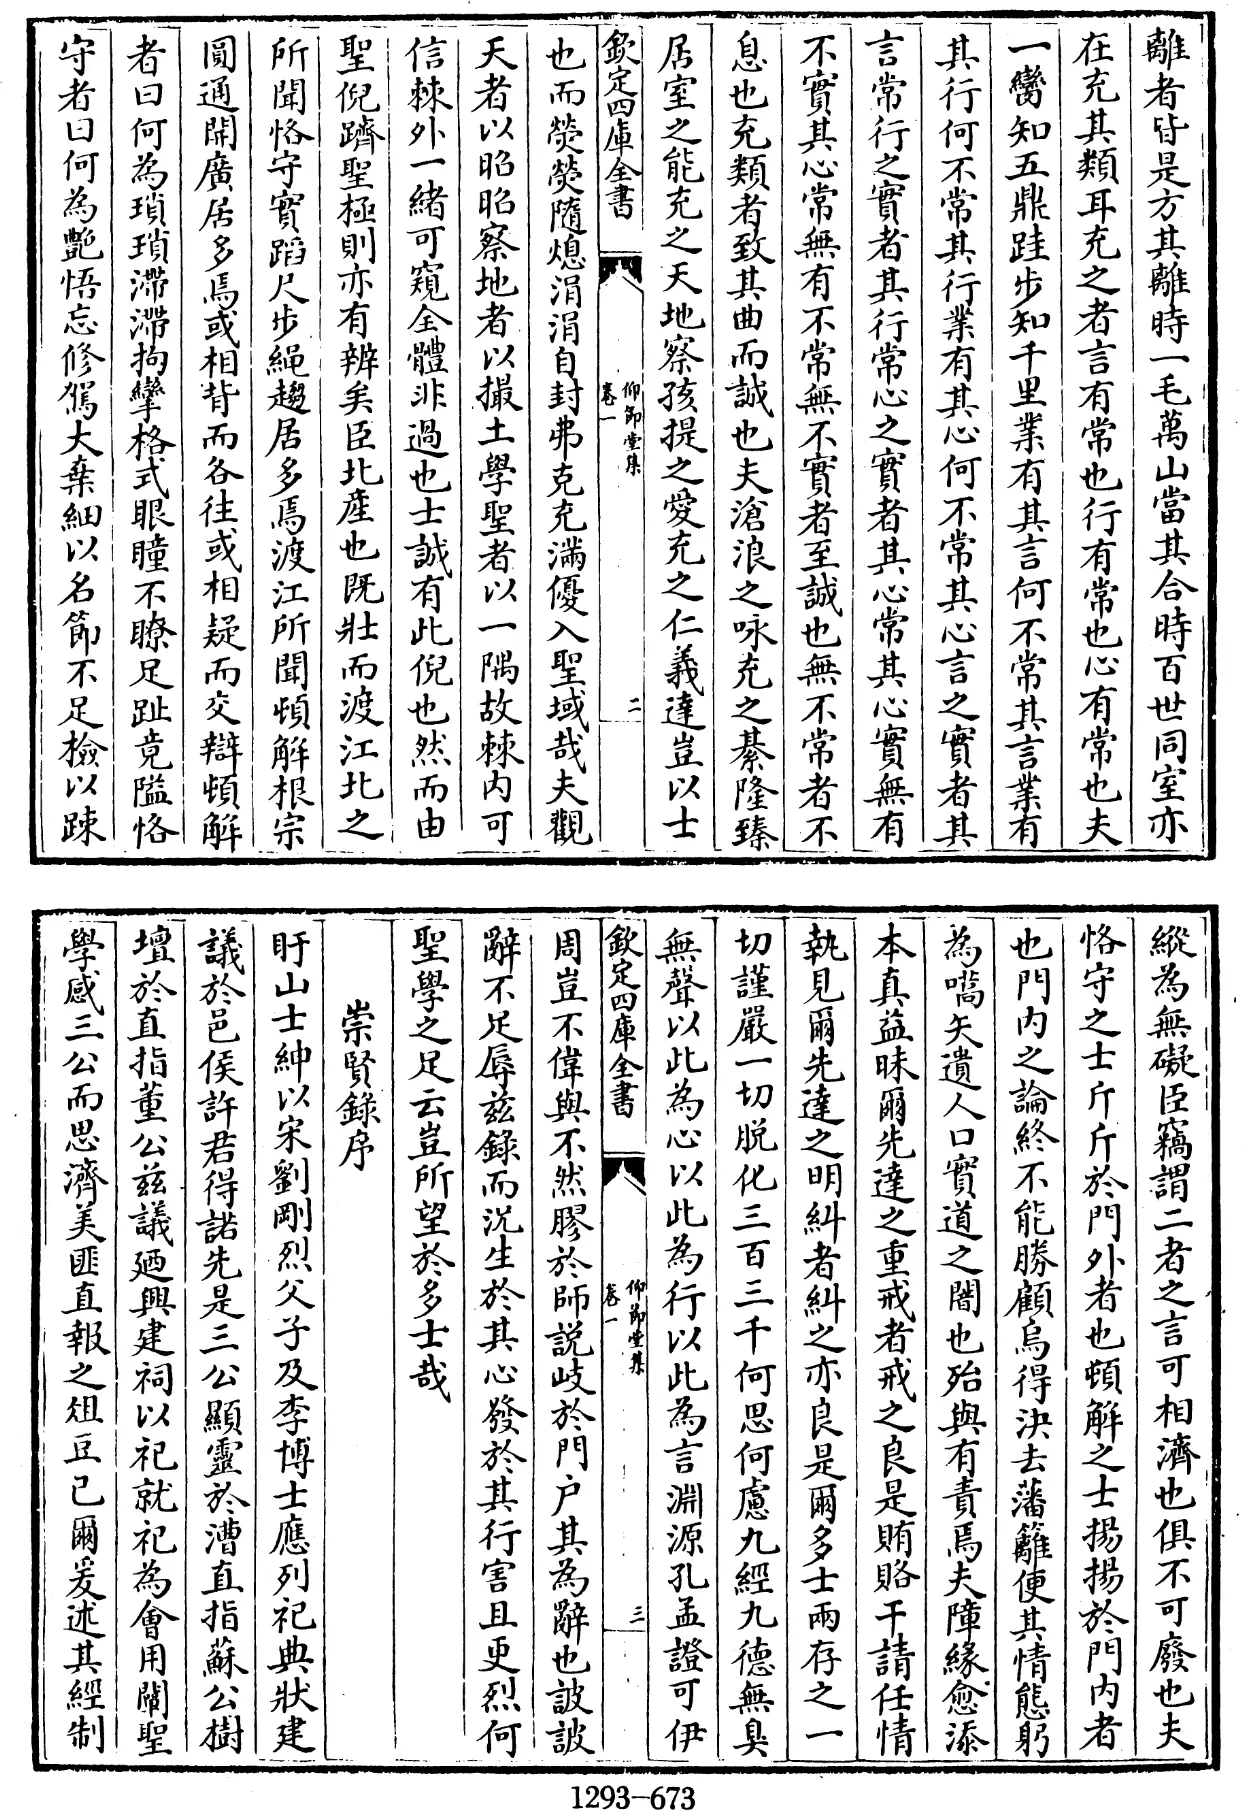 離者皆是方其離時一毛萬山當其合時百世同室亦
在充其類耳充之者言有常也行有常也心有常也夫
一臠知五鼎跬步知千里業有其言何不常其言業有
其行何不常其行業有其心何不常其心言之實者其
言常行之實者其行常心之實者其心常其心實無有
不實其心常無有不常無不實者至誠也無不常者不
息也充類者致其曲而誠也夫滄浪之咏充之綦隆臻
居室之能充之天地察孩提之愛充之仁義達豈以士
欽定四庫全書
仰節堂集
卷一
二
也而熒熒隨熄涓涓自封弗克充滿優入聖域哉夫觀
天者以昭昭察地者以撮土學聖者以一隅故棘内可
信棘外一緒可窺全體非過也士誠有此倪也然而由
聖倪躋聖極則亦有辨矣臣北産也既壯而渡江北之
所聞恪守實蹈尺步繩趨居多焉渡江所聞頓解根宗
圓通開廣居多焉或相背而各往或相疑而交辯頓解
者曰何為瑣瑣滯滯拘攣格式眼瞳不瞭足趾竟隘恪
守者曰何為艷悟忘修驚大棄細以名節不足檢以踈
縱為無礙臣竊謂二者之言可相濟也俱不可廢也夫
恪守之士斤斤於門外者也頓解之士揚揚於門内者
也門内之論終不能勝顧烏得決去藩籬便其情態躬
為嚆矢遺人口實道之闇也殆與有責焉夫障緣愈添
本真益昧爾先達之重戒者戒之良是賄賂干請任情
執見爾先達之明糾者糾之亦良是爾多士兩存之一
切謹嚴一切脱化三百三千何思何慮九經九德無臭
無聲以此為心以此為行以此為言淵源孔孟證可伊
欽定四庫全書
仰節堂集
卷一
三
周豈不偉與不然膠於師説岐於門户其為辭也詖詖
辭不足辱兹錄而沉生於其心發於其行害且更烈何
聖學之足云豈所望於多士哉
崇賢錄序
盱山士紳以宋劉剛烈父子及李博士應列祀典狀建
議於邑侯許君得諾先是三公顯靈於漕直指蘇公樹
壇於直指董公兹議廼興建祠以祀就祀為會用闡聖
學感三公而思濟美匪直報之俎豆已爾爰述其經制
1293-673